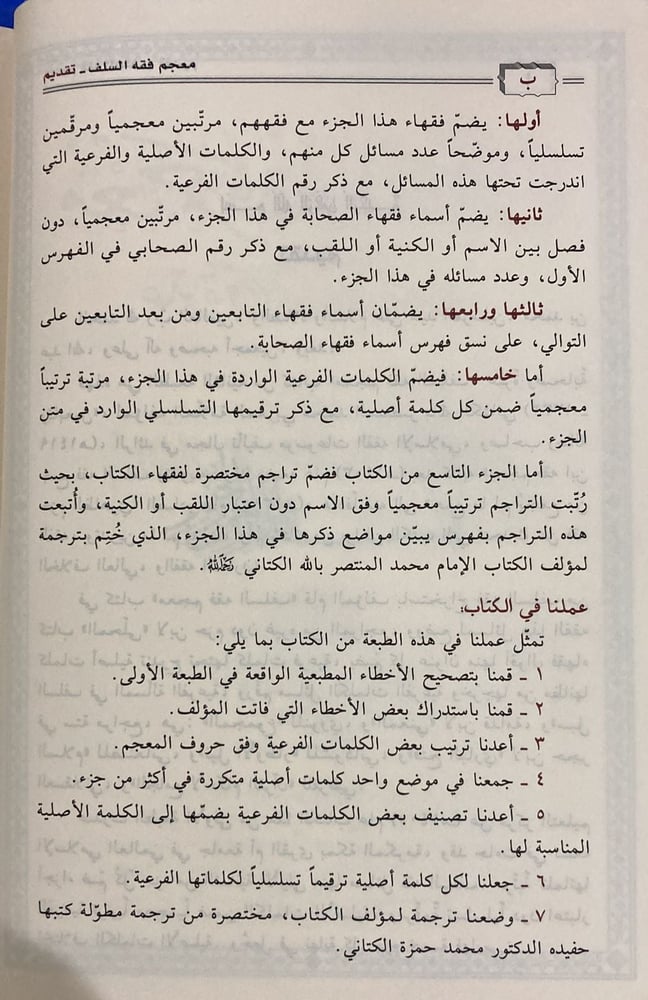 معجم فقه السلف ـ تقديم
ب
أولها: يضمّ فقهاء هذا الجزء مع فقههم، مرتّبين معجمياً ومرقّمين
تسلسلياً، وموضّحاً عدد مسائل كل منهم، والكلمات الأصلية والفرعية التي
اندرجت تحتها هذه المسائل، مع ذكر رقم الكلمات الفرعية.
ثانيها: يضمّ أسماء فقهاء الصحابة في هذا الجزء، مرتّبين معجمياً، دون
فصل بين الاسم أو الكنية أو اللقب، مع ذكر رقم الصحابي في الفهرس
الأول، وعدد مسائله في هذا الجزء.
ثالثها ورابعها: يضمّان أسماء فقهاء التابعين ومن بعد التابعين على
التوالي، على نسق فهرس أسماء فقهاء الصحابة.
أما خامسها: فيضمّ الكلمات الفرعية الواردة في هذا الجزء، مرتبة ترتيباً
معجمياً ضمن كل كلمة أصلية، مع ذكر ترقيمها التسلسلي الوارد في متن
الجزء.
أما الجزء التاسع من الكتاب فضمّ تراجم مختصرة لفقهاء الكتاب، بحيث
رُتّبت التراجم ترتيباً معجمياً وفق الاسم دون اعتبار اللقب أو الكنية، وأُتبعت
هذه التراجم بفهرس يبيّن مواضع ذكرها في هذا الجزء، الذي خُتِم بترجمة
لمؤلف الكتاب الإمام محمد المنتصر بالله الكتاني رحمه الله.
عملنا في الكتاب:
تمثّل عملنا في هذه الطبعة من الكتاب بما يلي:
١ ـ قمنا بتصحيح الأخطاء المطبعية الواقعة في الطبعة الأولى.
٢ ـ قمنا باستدراك بعض الأخطاء التي فاتت المؤلف.
٣ ـ أعدنا ترتيب بعض الكلمات الفرعية وفق حروف المعجم.
٤ ـ جمعنا في موضع واحد كلمات أصلية متكررة في أكثر من جزء.
٥ ـ أعدنا تصنيف بعض الكلمات الفرعية بضمّها إلى الكلمة الأصلية
المناسبة لها.
٦ ـ جعلنا لكل كلمة أصلية ترقيماً تسلسلياً لكلماتها الفرعية.
٧ ـ وضعنا ترجمة لمؤلف الكتاب، مختصرة من ترجمة مطوّلة كتبها
حفيده الدكتور محمد حمزة الكتاني.